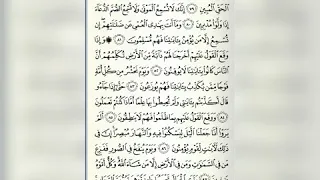 الْحَقِّ الْمُبِينِ ٧٩ إِنَّكَ لَا تُسْمِعُ الْمَوْتَىٰ وَلَا تُسْمِعُ الصُّمَّ الدُّعَاءَ
إِذَا وَلَّوْا مُدْبِرِينَ ٨٠ وَمَا أَنتَ بِهَادِي الْعُمْيِ عَن ضَلَالَتِهِمْ إِن
تُسْمِعُ إِلَّا مَن يُؤْمِنُ بِآيَاتِنَا فَهُم مُّسْلِمُونَ ٨١ وَإِذَا
وَقَعَ الْقَوْلُ عَلَيْهِمْ أَخْرَجْنَا لَهُمْ دَابَّةً مِّنَ الْأَرْضِ تُكَلِّمُهُمْ أَنَّ
النَّاسَ كَانُوا بِآيَاتِنَا لَا يُوقِنُونَ ٨٢ وَيَوْمَ نَحْشُرُ مِن كُلِّ أُمَّةٍ
فَوْجًا مِّمَّن يُكَذِّبُ بِآيَاتِنَا فَهُمْ يُوزَعُونَ ٨٣ حَتَّىٰ إِذَا جَاءُو
قَالَ أَكَذَّبْتُم بِآيَاتِي وَلَمْ تُحِيطُوا بِهَا عِلْمًا أَمَّاذَا كُنتُمْ تَعْمَلُونَ
٨٤ وَوَقَعَ الْقَوْلُ عَلَيْهِم بِمَا ظَلَمُوا فَهُمْ لَا يَنطِقُونَ ٨٥ أَلَمْ
يَرَوْا أَنَّا جَعَلْنَا اللَّيْلَ لِيَسْكُنُوا فِيهِ وَالنَّهَارَ مُبْصِرًا إِنَّ فِي
ذَٰلِكَ لَآيَاتٍ لِّقَوْمٍ يُؤْمِنُونَ ٨٦ وَيَوْمَ يُنفَخُ فِي الصُّورِ فَفَزِعَ
مَن فِي السَّمَاوَاتِ وَمَن فِي الْأَرْضِ إِلَّا مَن شَاءَ اللَّهُ وَكُلٌّ أَتَوْهُ